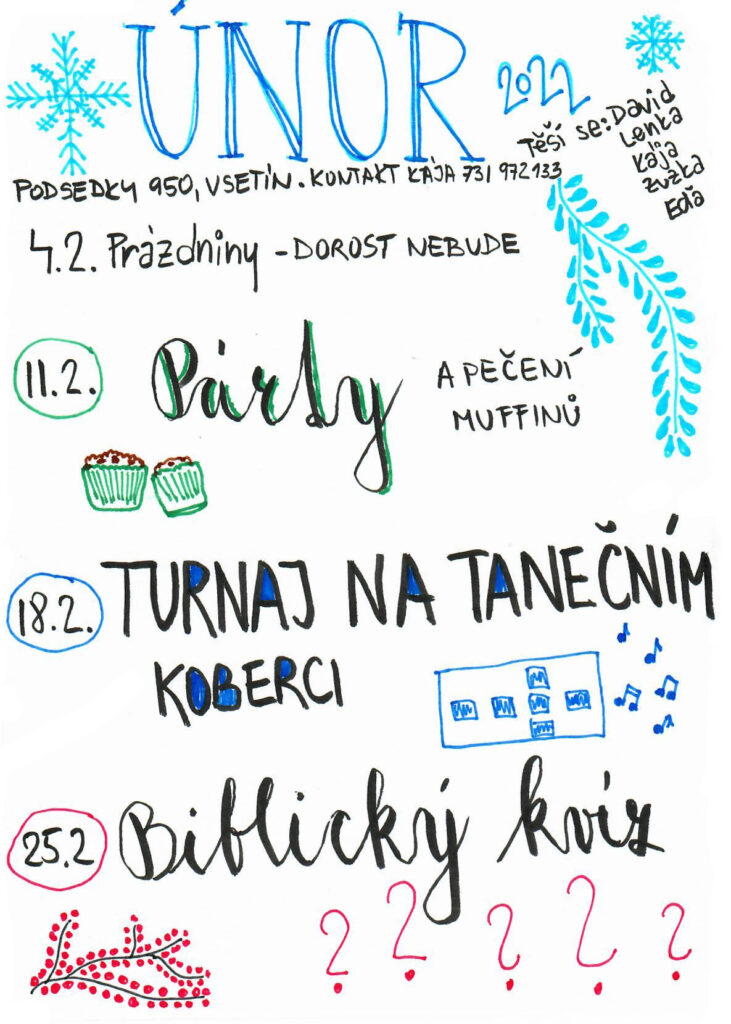 ÚNOR
2022
Těší se: David
Lenka
Kája
Zuzka
Eďa
PODSEDKY 950, VSETÍN. KONTAKT KÁJA 731 972 133
4.2. Prázdniny - DOROST NEBUDE
11.2. Párty A PEČENÍ
MUFFINŮ
18.2. TURNAJ NA TANEČNÍM
KOBERCI
25.2 Biblický kvíz
? ? ? ? ?